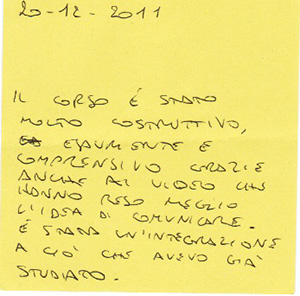 20-12-2011
IL CORSO É STATO
MOLTO COSTRUTTIVO,
ESAURIENTE E
COMPRENSIVO GRAZIE
ANCHE AI VIDEO CHE
HANNO RESO MEGLIO
L'IDEA DI COMUNICARE.
É STATA UN'INTEGRAZIONE
A CIÒ CHE AVEVO GIÀ
STUDIATO.